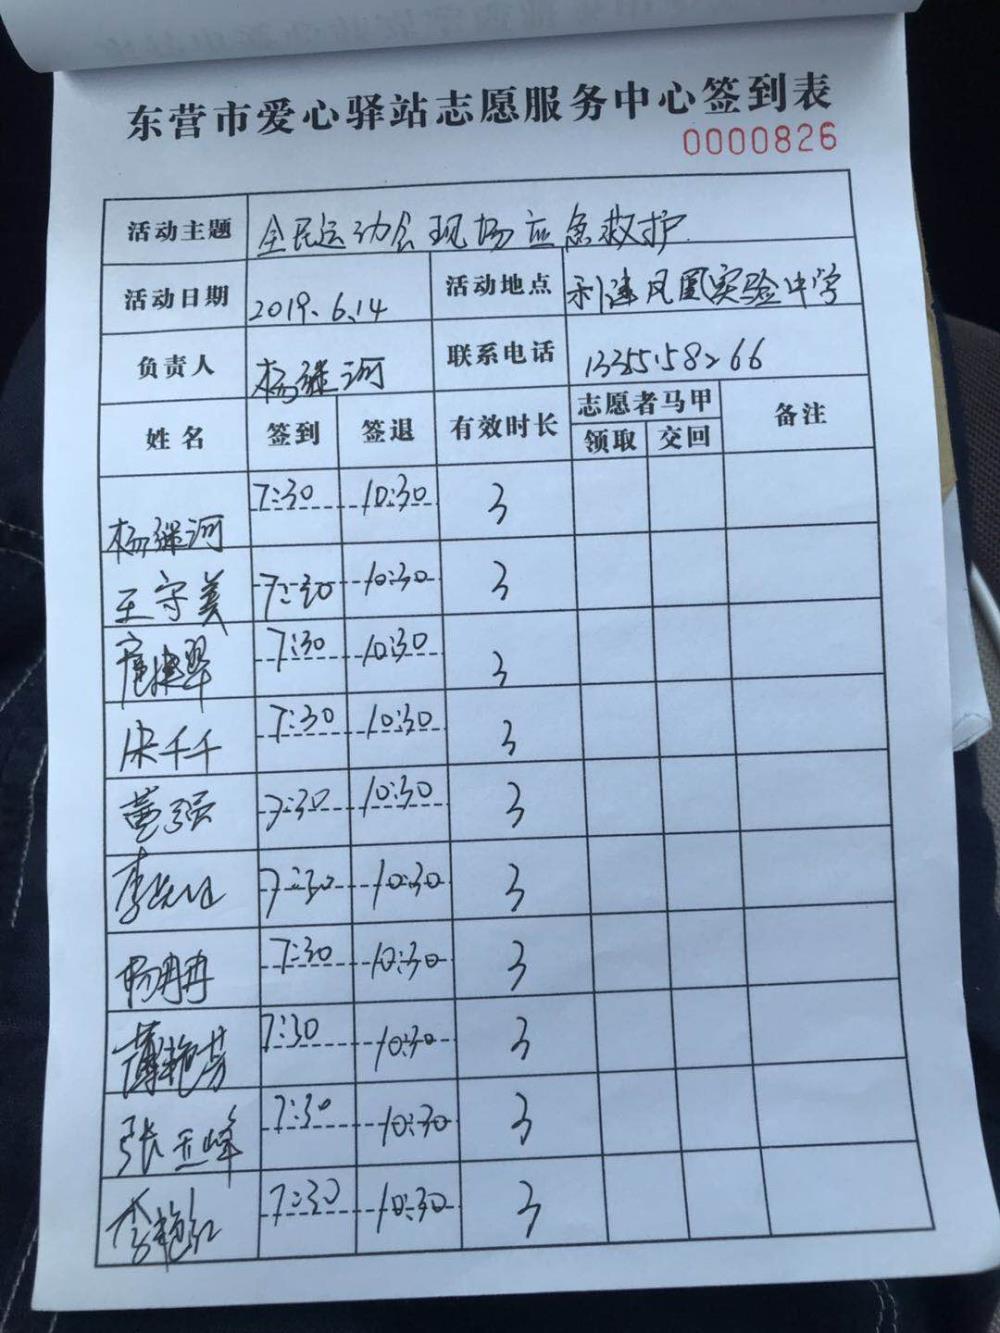 东营市爱心驿站志愿服务中心签到表
0000826
活动主题 全民运动会现场应急救护
活动日期 2019.6.14 活动地点 利津凤凰实验中学
负责人 杨继河 联系电话 13355158266
姓名 签到 签退 有效时长 志愿者马甲 备注
领取 交回
杨继河 7:30 10:30 3
王守美 7:30 10:30 3
7:30 10:30 3
宋千千 7:30 10:30 3
董强 7:30 10:30 3
李 7:30 10:30 3
杨冉冉 7:30 10:30 3
薄艳芳 7:30 10:30 3
张玉峰 7:30 10:30 3
李艳红 7:30 10:30 3